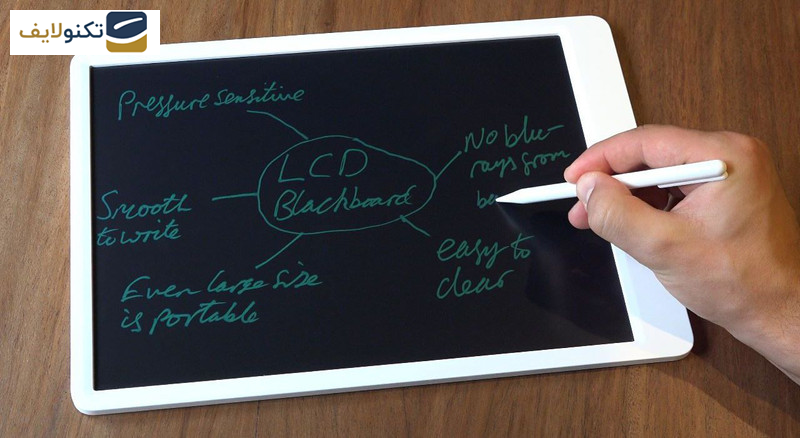 تکنولایف
Pressure sensitive
LCD
Blackboard
No blu-
rays from
Smooth
to write
easy to
clear
Even large size
is portable